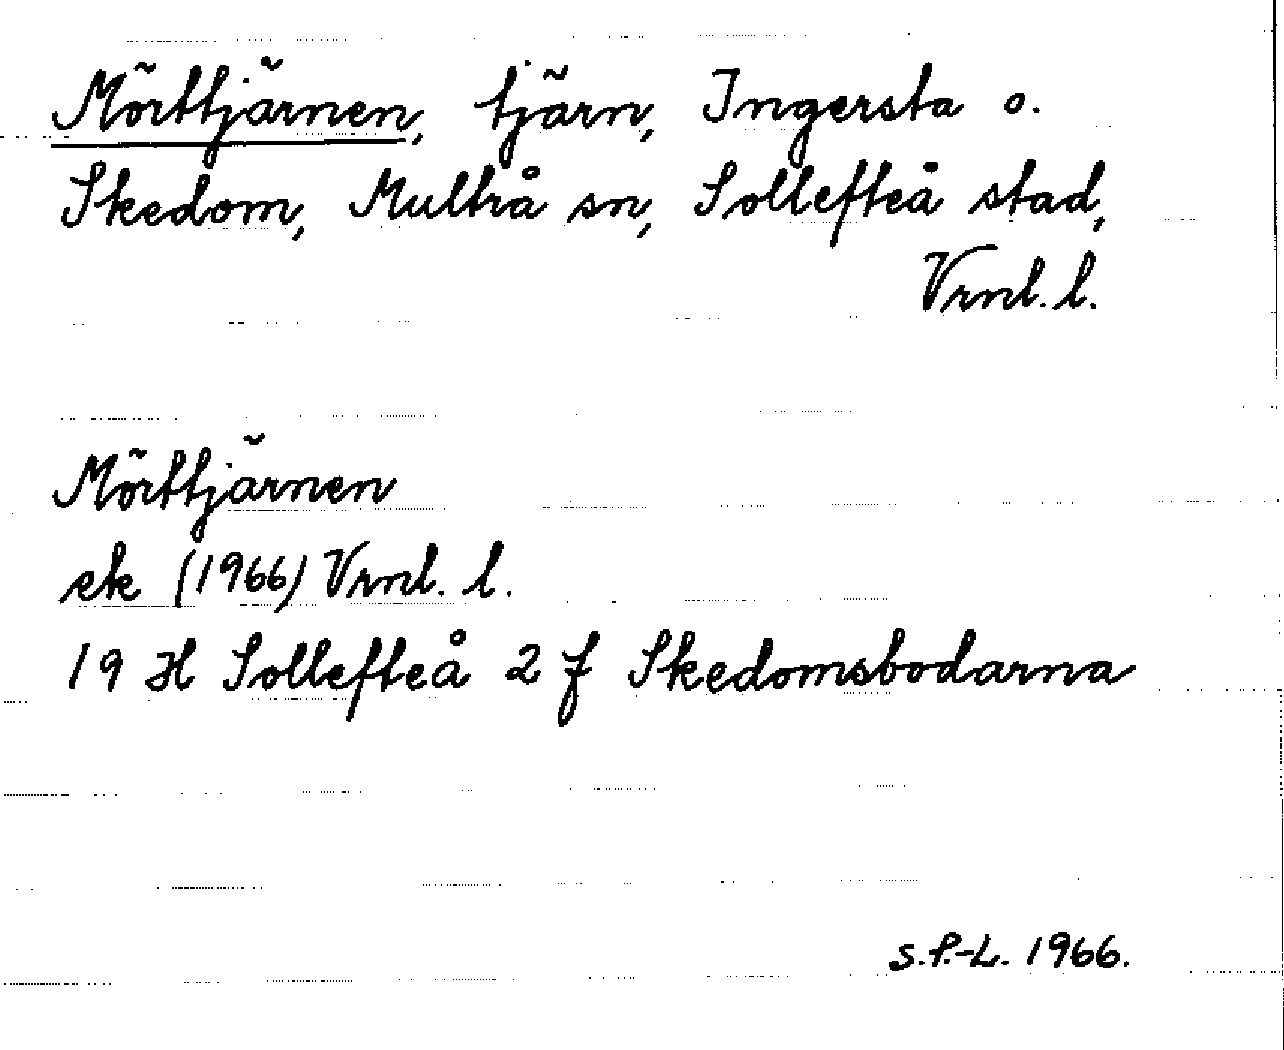 Mörttjärnen, tjärn, Ingersta o.
Skedom, Multrå sn, Sollefteå stad,
Vrnl. l.
Mörttjärnen
ek (1966) Vrnl. l.
19 H Sollefteå 2 f Skedomsbodarna
S.P.-L. 1966.